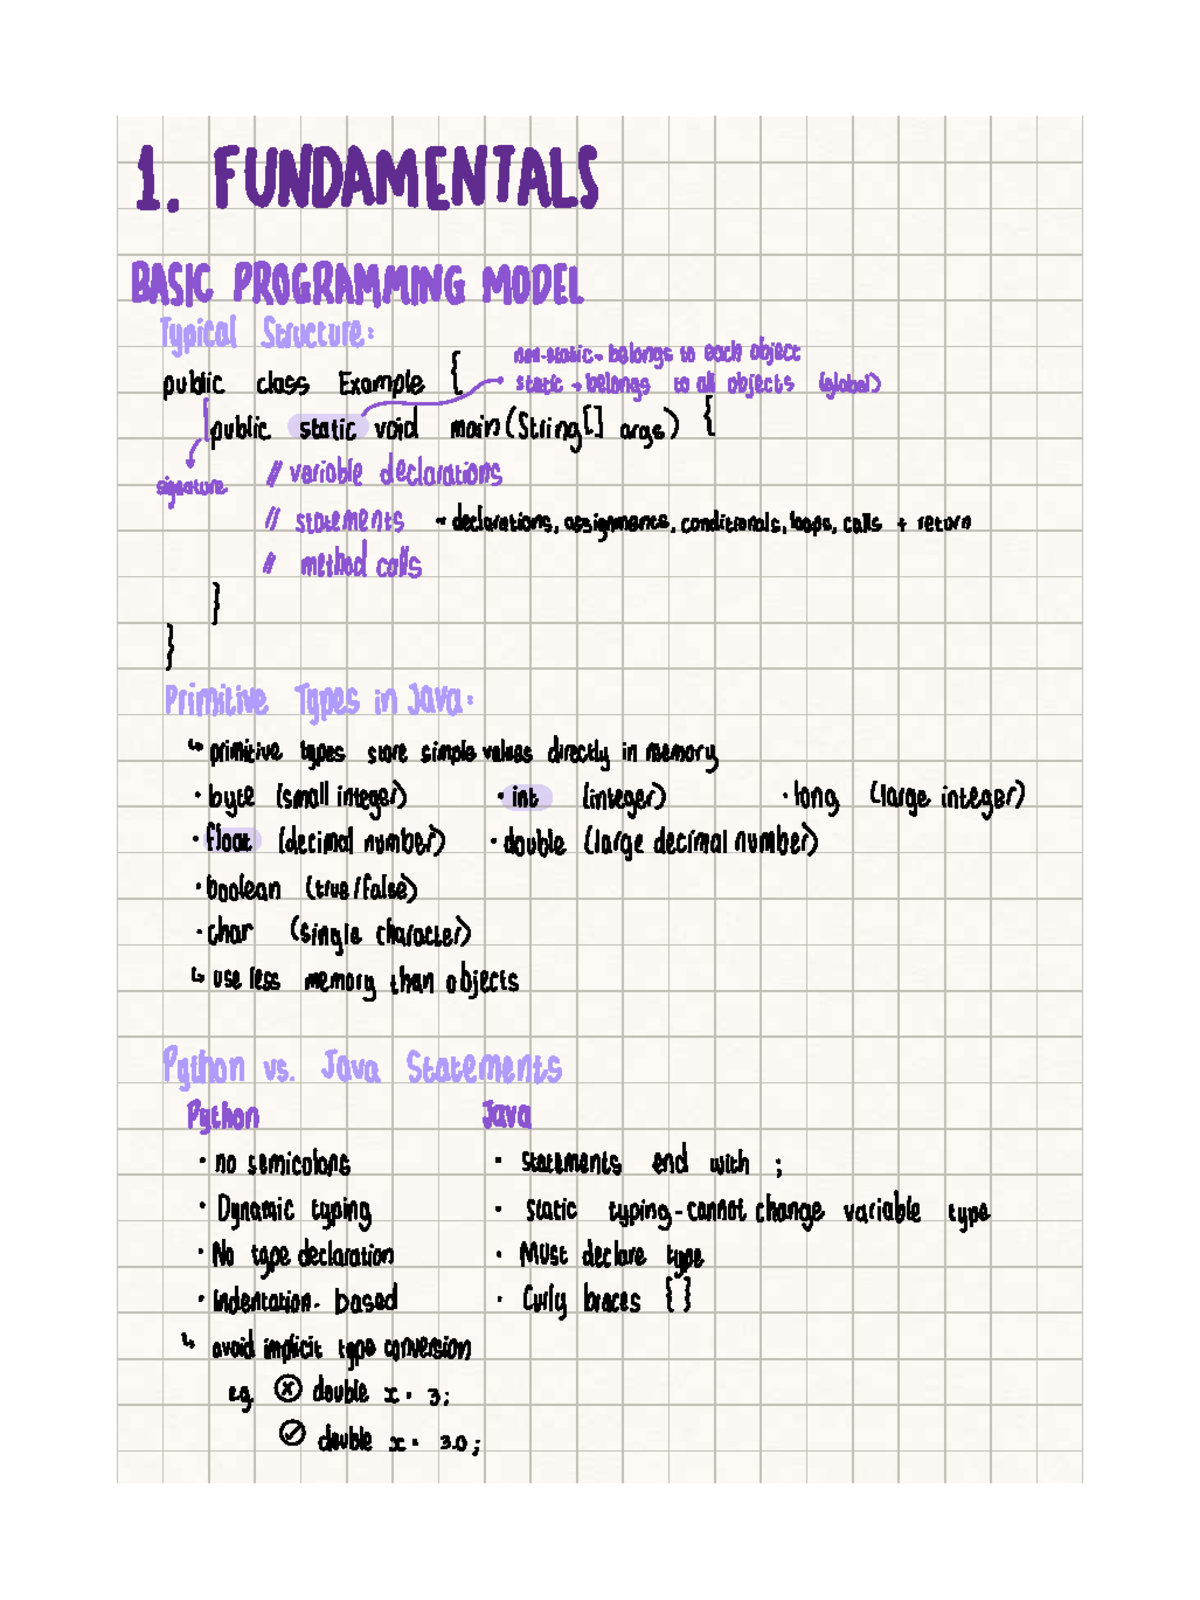 1. FUNDAMENTALS
BASIC PROGRAMMING MODEL
Typical Structure:
non-static - belongs to each object
public class Example {
static → belongs to all objects (global)
public static void main(String[] args) {
signature
// variable declarations
// statements → declarations, assignments, conditionals, loops, calls + return
// method calls
}
}
Primitive Types in Java:
↳ primitive types store simple values directly in memory
· byte (small integer) · int (integer) · long (large integer)
· float (decimal number) · double (large decimal number)
· boolean (true/false)
· char (single character)
↳ use less memory than objects
Python vs. Java Statements
Python Java
· no semicolons · statements end with ;
· Dynamic typing · static typing - cannot change variable type
· No type declaration · Must declare type
· Indentation-based · Curly braces {}
↳ avoid implicit type conversion
eg. ⓧ double x = 3;
✓ double x = 3.0;